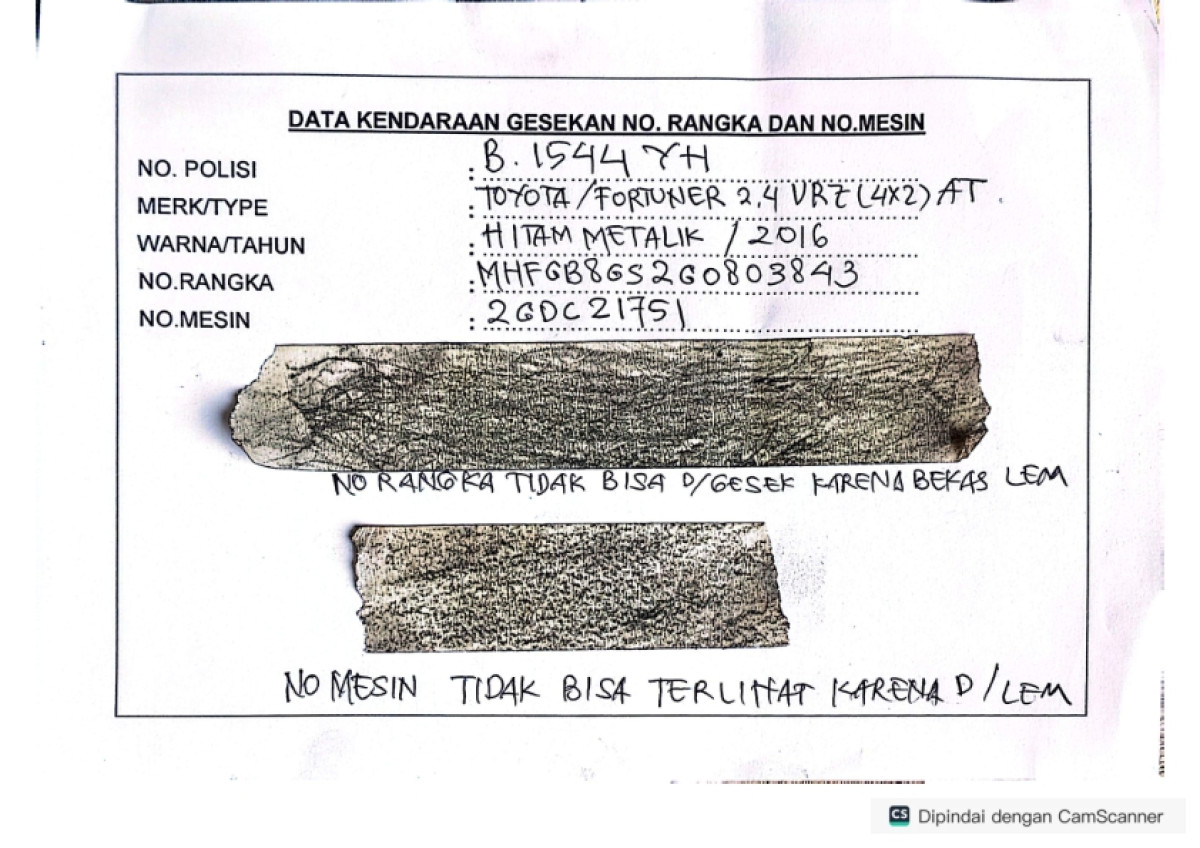 DATA KENDARAAN GESEKAN NO. RANGKA DAN NO.MESIN
NO. POLISI : B. 1544 YH
MERK/TYPE : TOYOTA/FORTUNER 2.4 VRZ (4X2) AT.
WARNA/TAHUN : HITAM METALIK / 2016
NO.RANGKA : MHFGB8GS2G0803843
NO.MESIN : 2GDC21751
NO RANGKA TIDAK BISA D/GESEK KARENA BEKAS LEM
NO MESIN TIDAK BISA TERLIHAT KARENA D/LEM
CS Dipindai dengan CamScanner